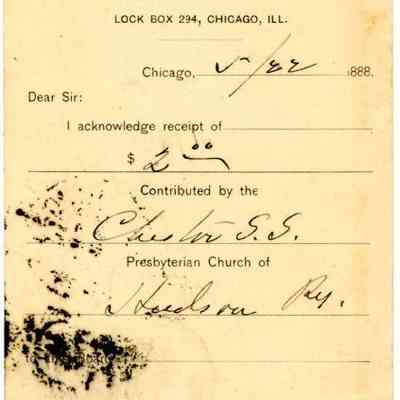 LOCK BOX 294, CHICAGO, ILL.
Chicago, 5/22 1888.
Dear Sir:
I acknowledge receipt of
$ 2.00
Contributed by the
Chester S.S.
Presbyterian Church of
Hudson Pby.